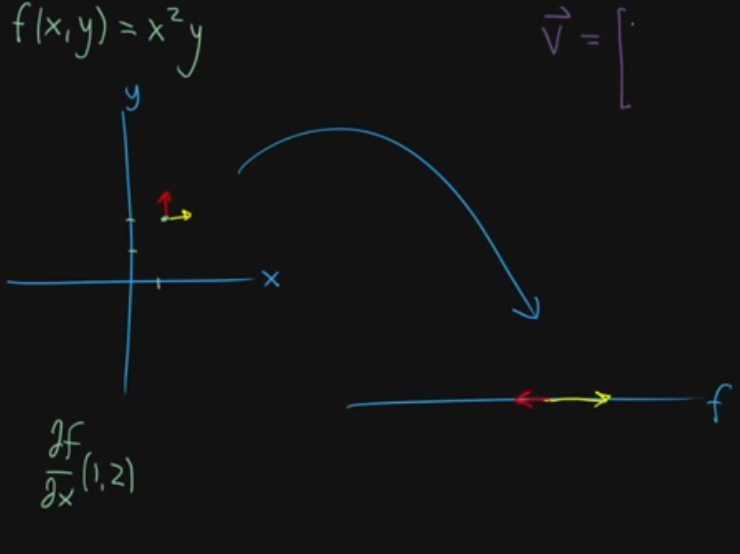 f(x,y) = x²y
V⃗ = [
y
x
f
∂f/∂x (1,2)